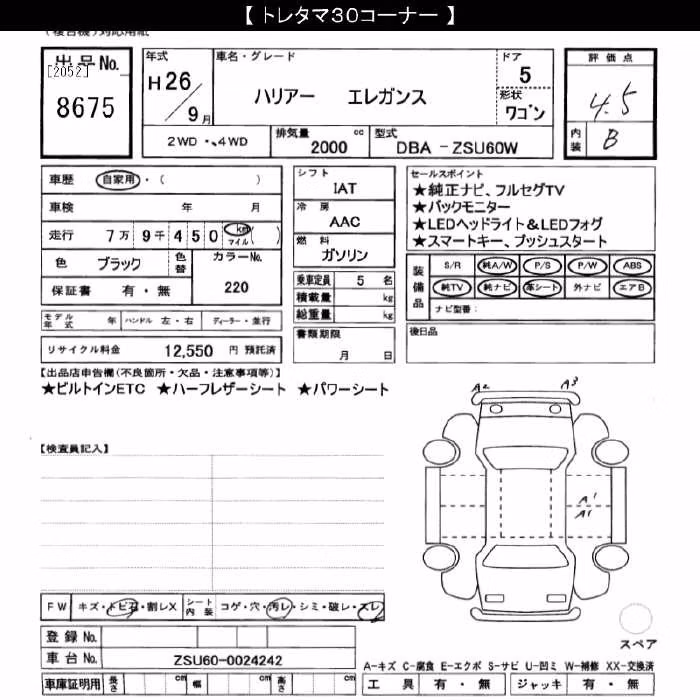 【 トレタマ３０コーナー 】
出品No.
[2052]
8675
年式
H26/9月
車名・グレード
ハリアー エレガンス
ドア
5
形状
ワゴン
2WD ・ 4WD
排気量 cc
2000
型式
DBA - ZSU60W
評価点
4.5
内装
B
車歴 自家用・( )
車検 年 月
走行 7万 9千 4 5 0 km マイル ( )
色 ブラック 色替 カラーNo.
220
保証書 有・無
モデル年式 年 ハンドル 左・右 ディーラー・並行
リサイクル料金 12,550 円 預託済
シフト
IAT
冷房
AAC
燃料
ガソリン
乗車定員 5 名
積載量 kg
総重量 kg
書類期限
月 日
セールスポイント
★純正ナビ、フルセグTV
★バックモニター
★LEDヘッドライト&LEDフォグ
★スマートキー、プッシュスタート
装備品
S/R 純A/W P/S P/W ABS
純TV 純ナビ 革シート 外ナビ エアB
ナビ型番:
後日品
【出品店申告欄(不良箇所・欠品・注意事項等)】
★ビルトインETC ★ハーフレザーシート ★パワーシート
【検査員記入】
A2 A3
A1
A1
FW キズ・トビ石・割レX シート内装 コゲ・穴・汚レ・シミ・破レ・スレ
登録No.
車台No. ZSU60-0024242
車庫証明用 長さ cm 幅 cm 高さ cm
スペア
A-キズ C-腐食 E-エクボ S-サビ U-凹ミ W-補修 XX-交換済
工具 有・無 ジャッキ 有・無